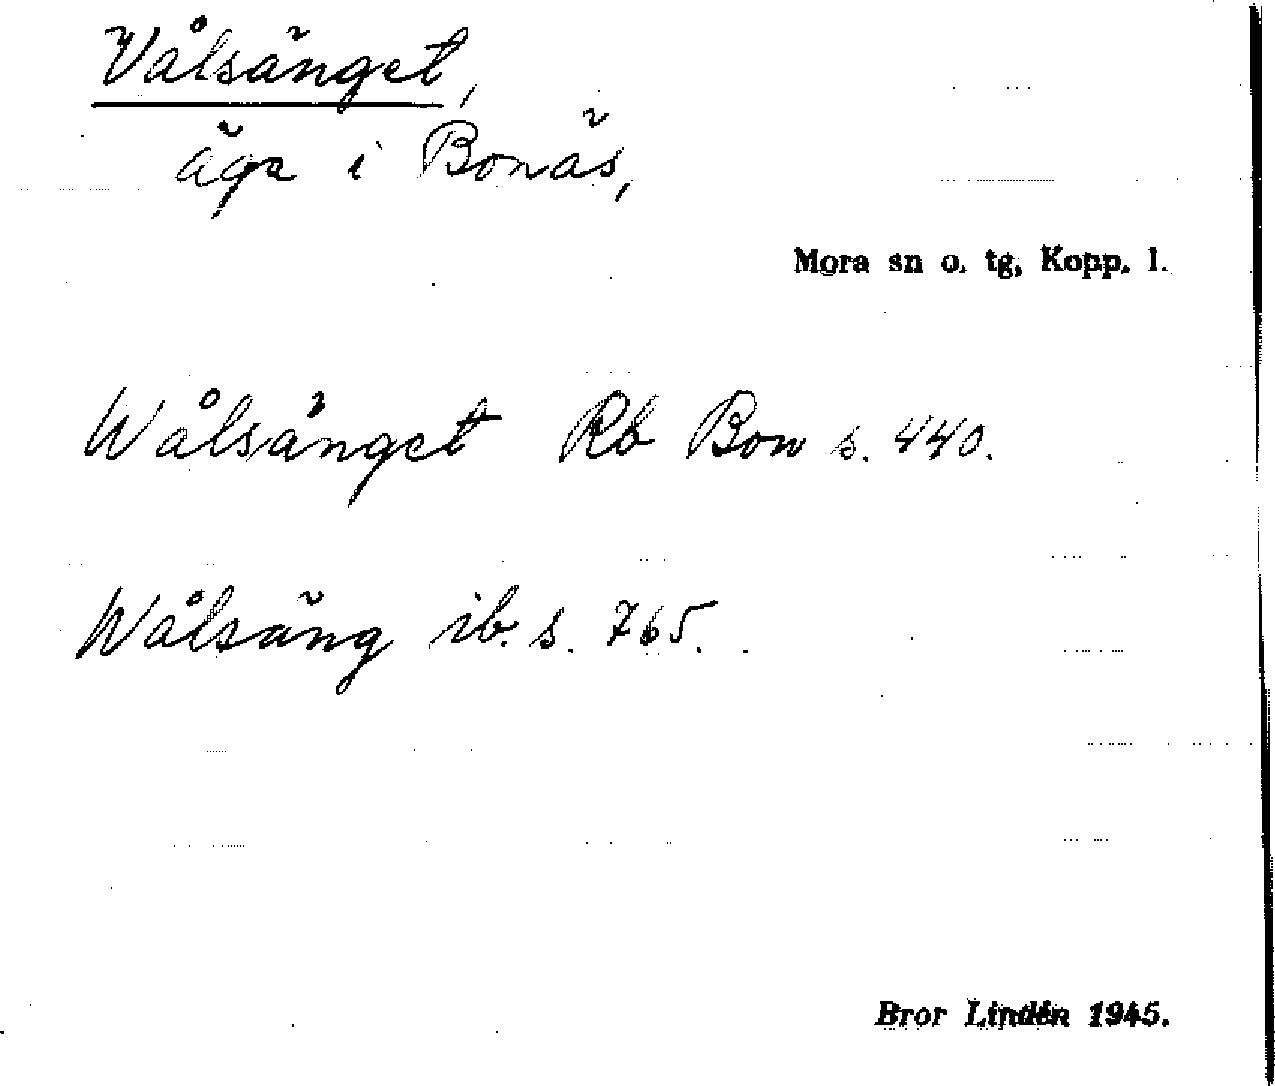 Vålsänget,
äga i Bonäs,
Mora sn o. tg, Kopp. l.
Wålsänget Rb Bon s. 440.
Wålsäng ib. s. 765.
Bror Lindén 1945.